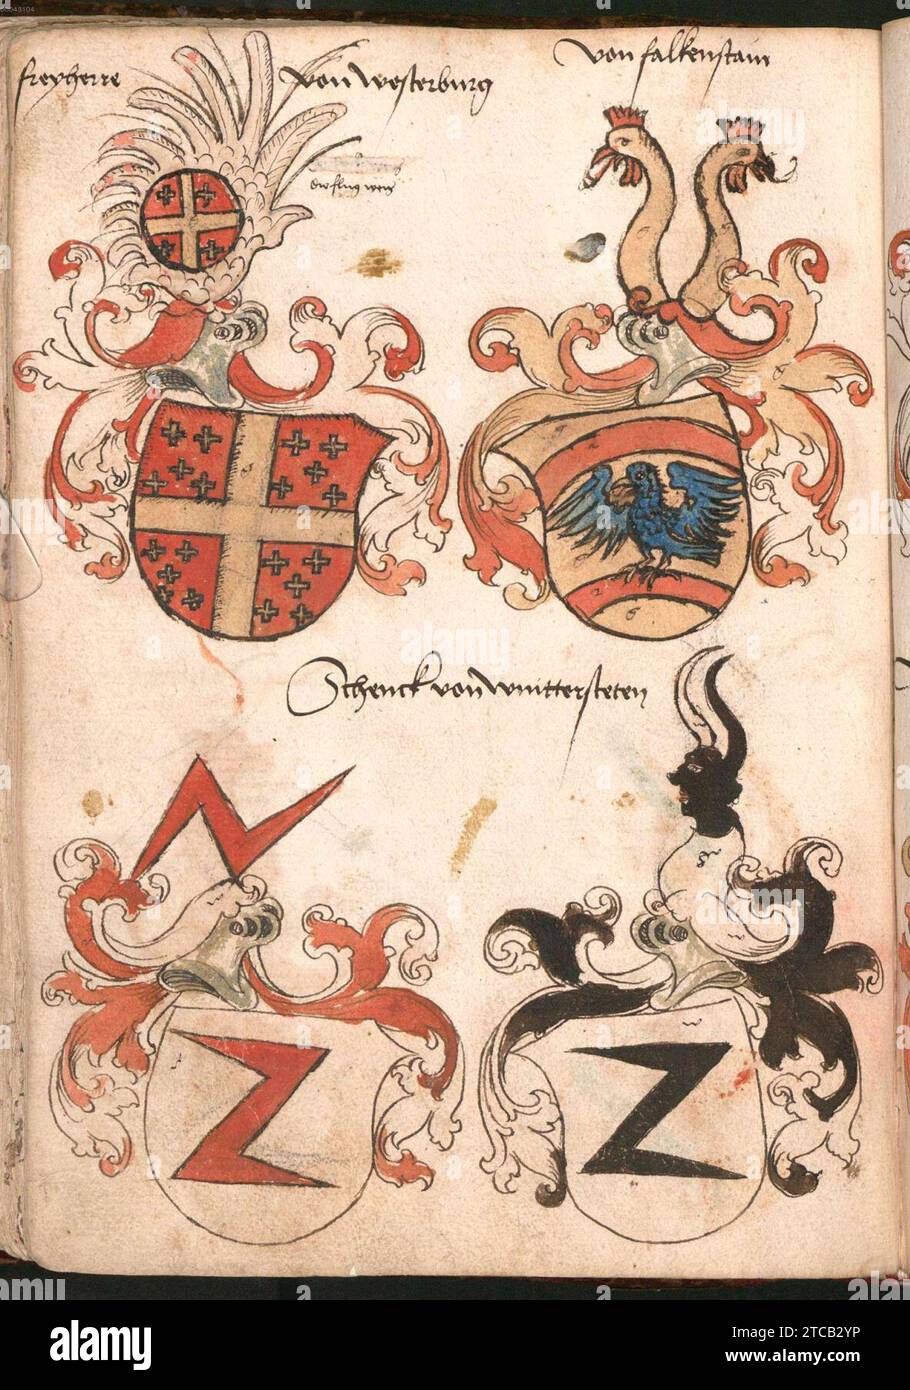 freyherre von Westerburg
von falkenstain
Schenck von Wnittersteten
alamy
Image ID: 2TCB2YP
www.alamy.com